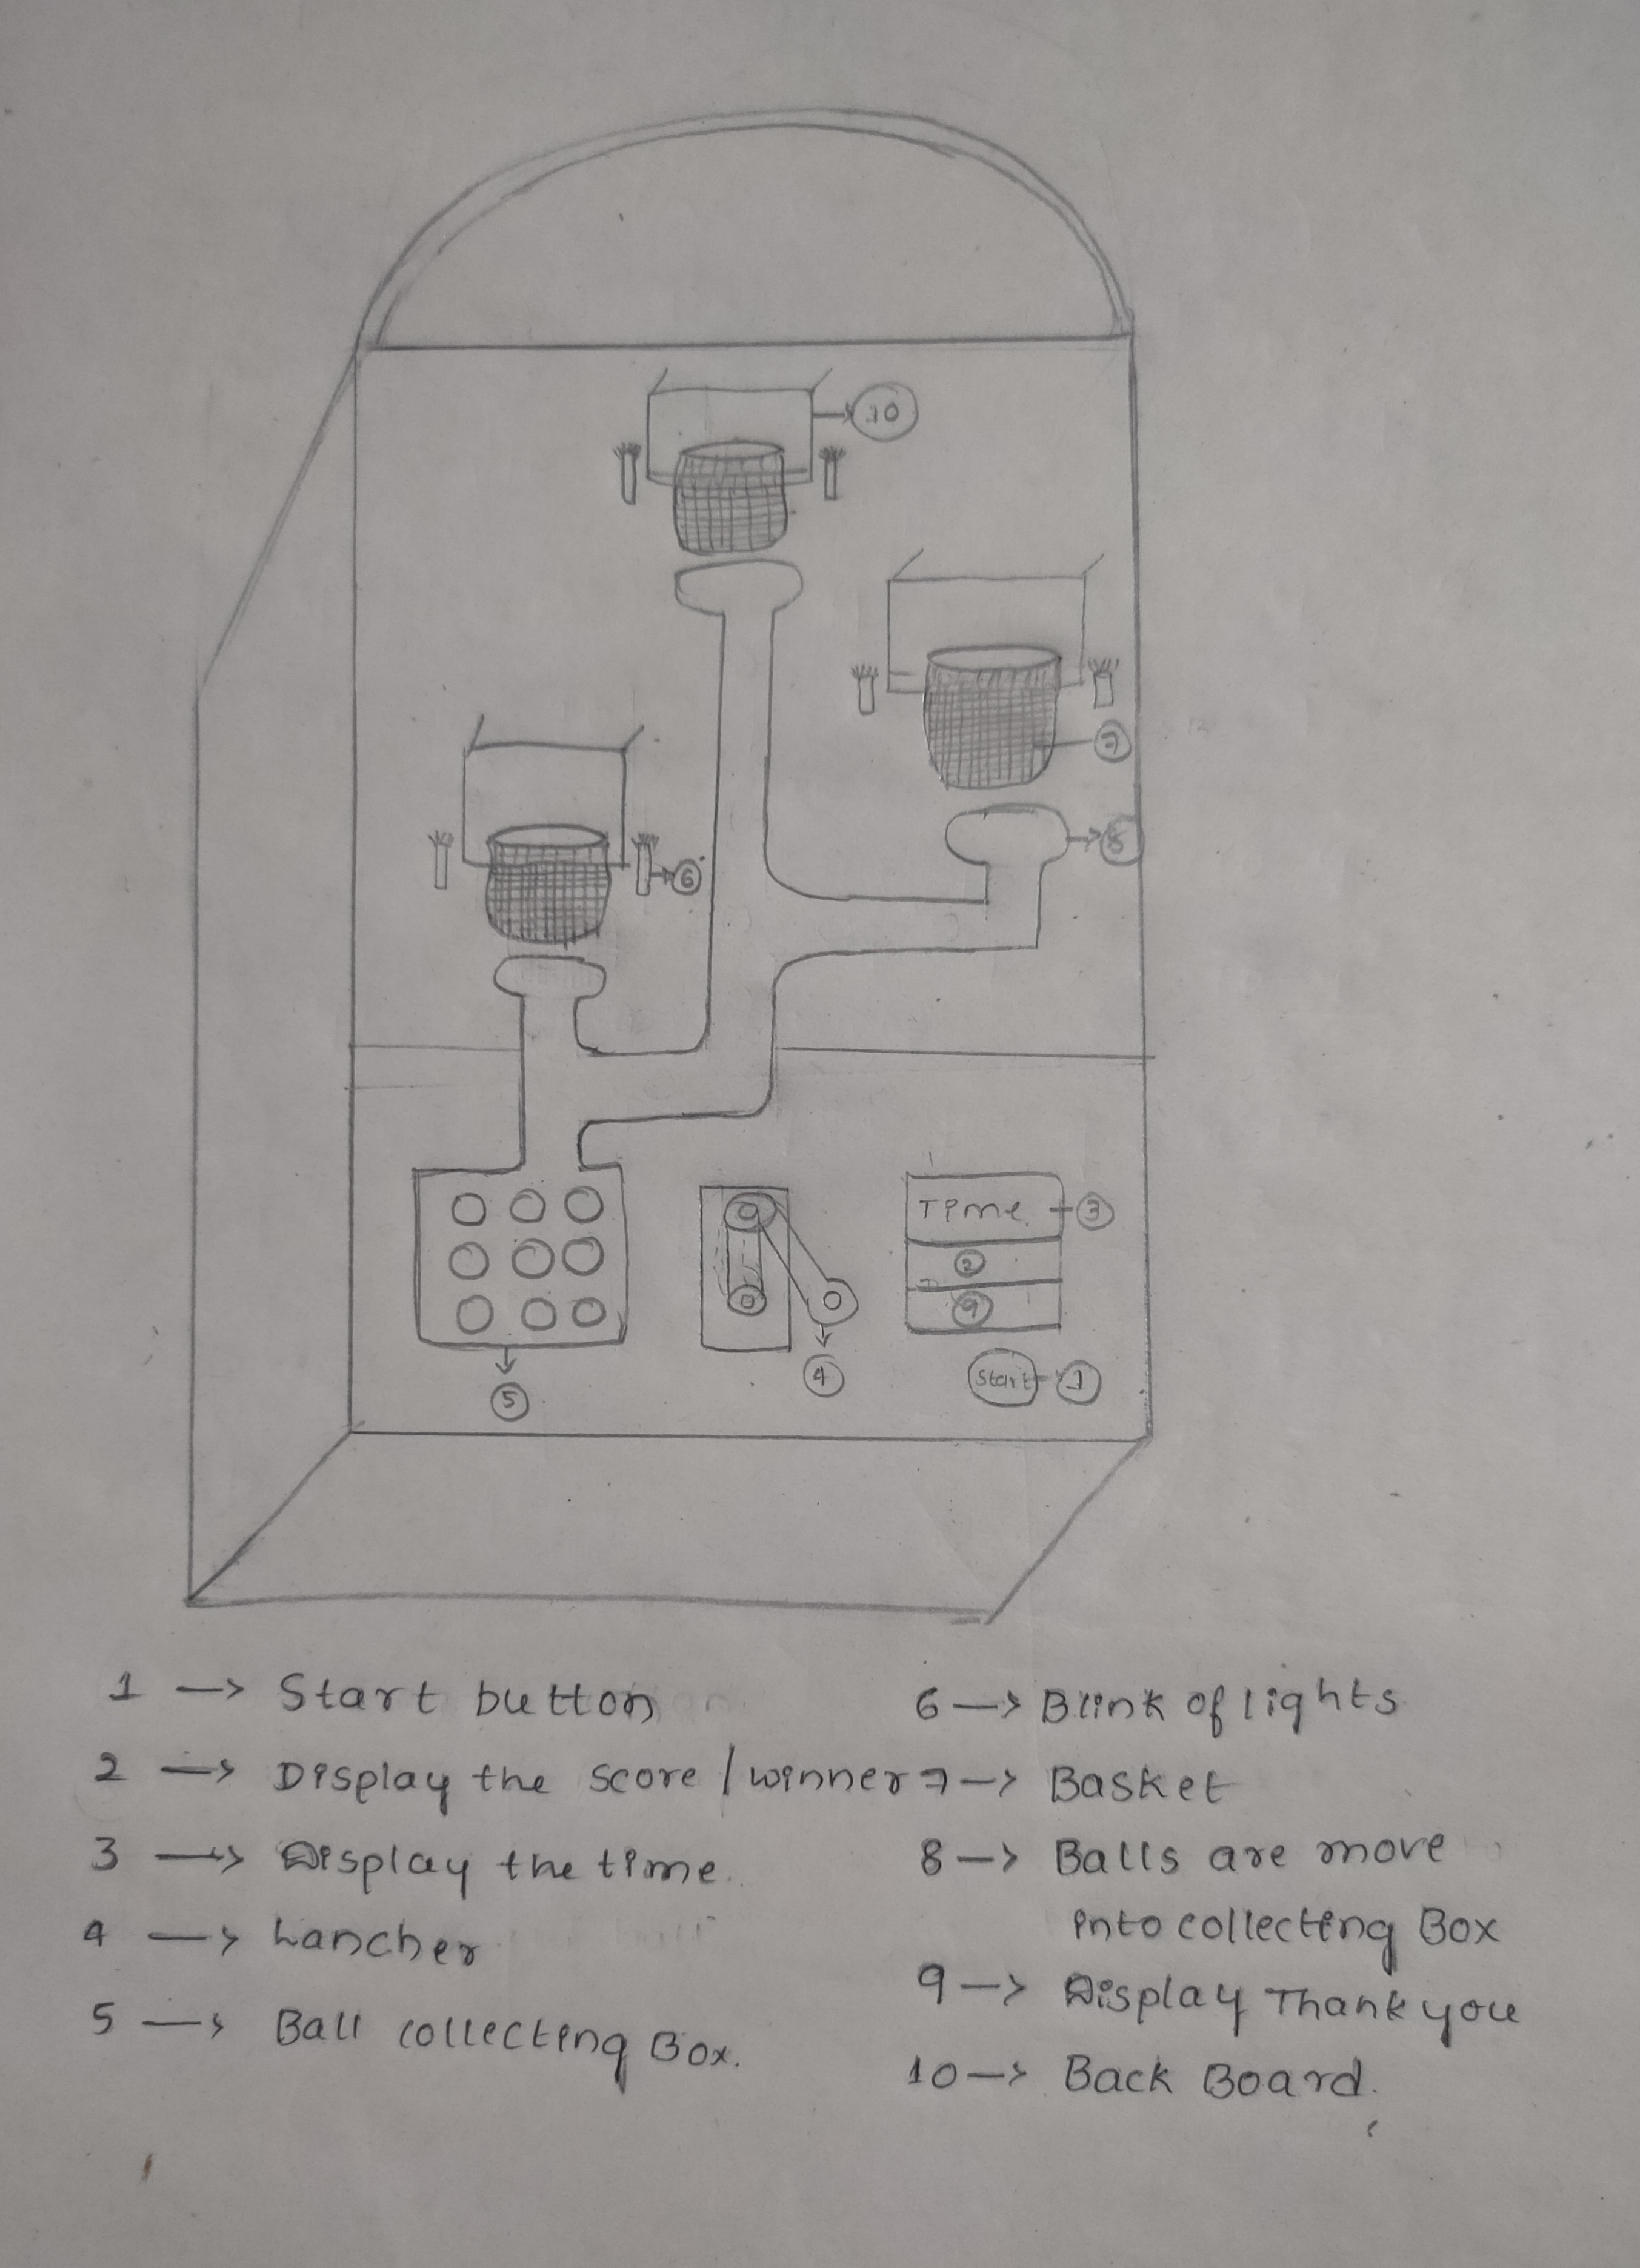 10
7
8
6
Time 3
2
9
4
Start 1
5
1 → Start button
2 → Display the score / winner
3 → Display the time.
4 → Lancher
5 → Ball collecting Box.
6 → Blink of lights
7 → Basket
8 → Balls are move
into collecting Box
9 → Display Thank you
10 → Back Board.